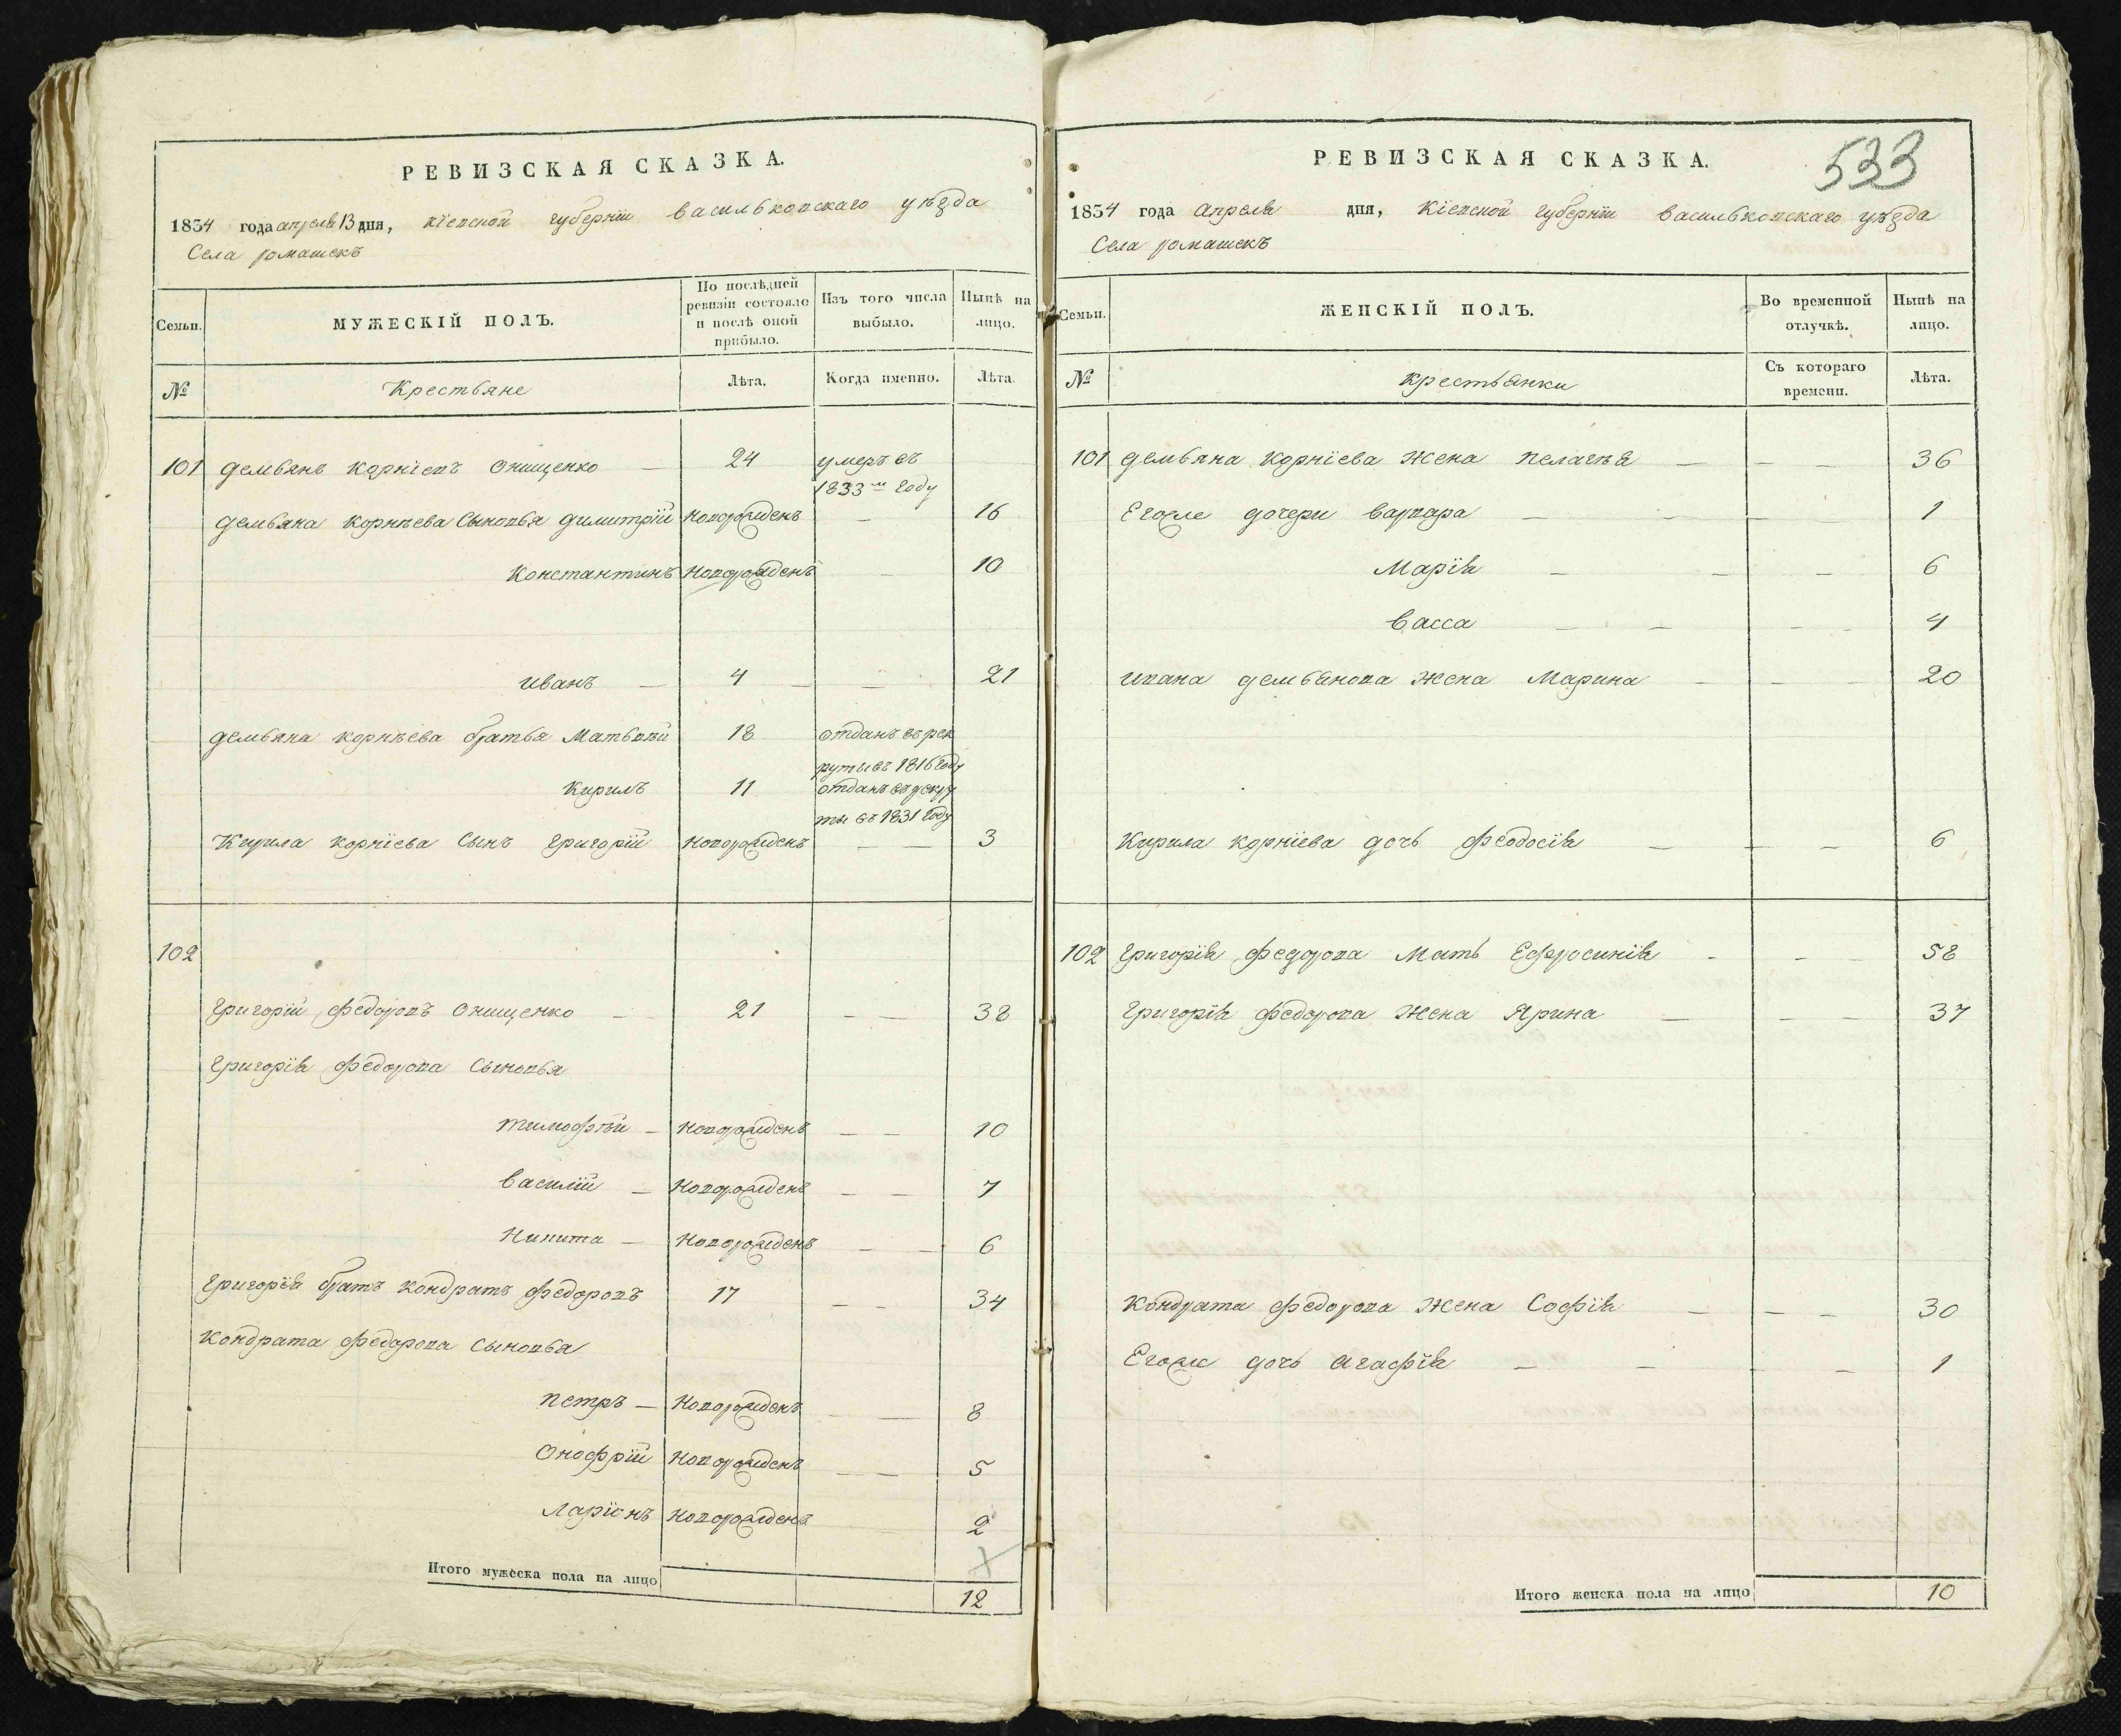 РЕВИЗСКАЯ СКАЗКА.
1834 года апреля 13 дня, Кіевской губерніи Васильковскаго уѣзда
Села Ромашекъ
Семьи. МУЖЕСКІЙ ПОЛЪ. По послѣдней ревизіи состояло и послѣ оной прибыло. Изъ того числа выбыло. Нынѣ на лицо.
№ Крестьяне Лѣта. Когда именно. Лѣта.
101 Демьянъ Корніевъ Онищенко — 24 умеръ въ
1833м году
Демьяна Корнѣева Сыновья Димитрій Новорожденъ — 16
Константинъ Новорожденъ — 10
Иванъ — 4 — — 21
Демьяна Корнѣева братья Матвѣй 18 отданъ въ рек
руты въ 1816 году
Кирилъ 11 отданъ въ рекру
ты въ 1831 году
Кирила Корніева Сынъ Григорій Новорожденъ — — 3
102
Григорій Федоровъ Онищенко — 21 — — 38
Григорія Федорова Сыновья
Тимофѣй — Новорожденъ — — 10
Василій — Новорожденъ — — 7
Никита — Новорожденъ — — 6
Григорія братъ Кондратъ Федоровъ 17 — — 34
Кондрата Федорова Сыновья
Петръ — Новорожденъ — — 8
Онофрій Новорожденъ — — 5
Ларіонъ Новорожденъ 2
Итого мужеска пола на лицо 12
533
РЕВИЗСКАЯ СКАЗКА.
1834 года апреля дня, Кіевской губерніи Васильковскаго уѣзда
Села Ромашекъ
Семьи. ЖЕНСКІЙ ПОЛЪ. Во временной отлучкѣ. Нынѣ на лицо.
№ Крестьянки Съ котораго времени. Лѣта.
101 Демьяна Корніева Жена Пелагѣя — — — 36
Егоже дочери Варвара — — — — 1
Марія — — — 6
Васса — — — — 4
Ивана Демьянова Жена Марина — — — 20
Кирила Корніева дочь Феодосія — — — 6
102 Григорія Федорова Мать Ефросинія — — — 58
Григорія Федорова Жена Ярина — — — 37
Кондрата Федорова Жена Софія — — — 30
Егоже дочь Агафія — — — — 1
Итого женска пола на лицо 10